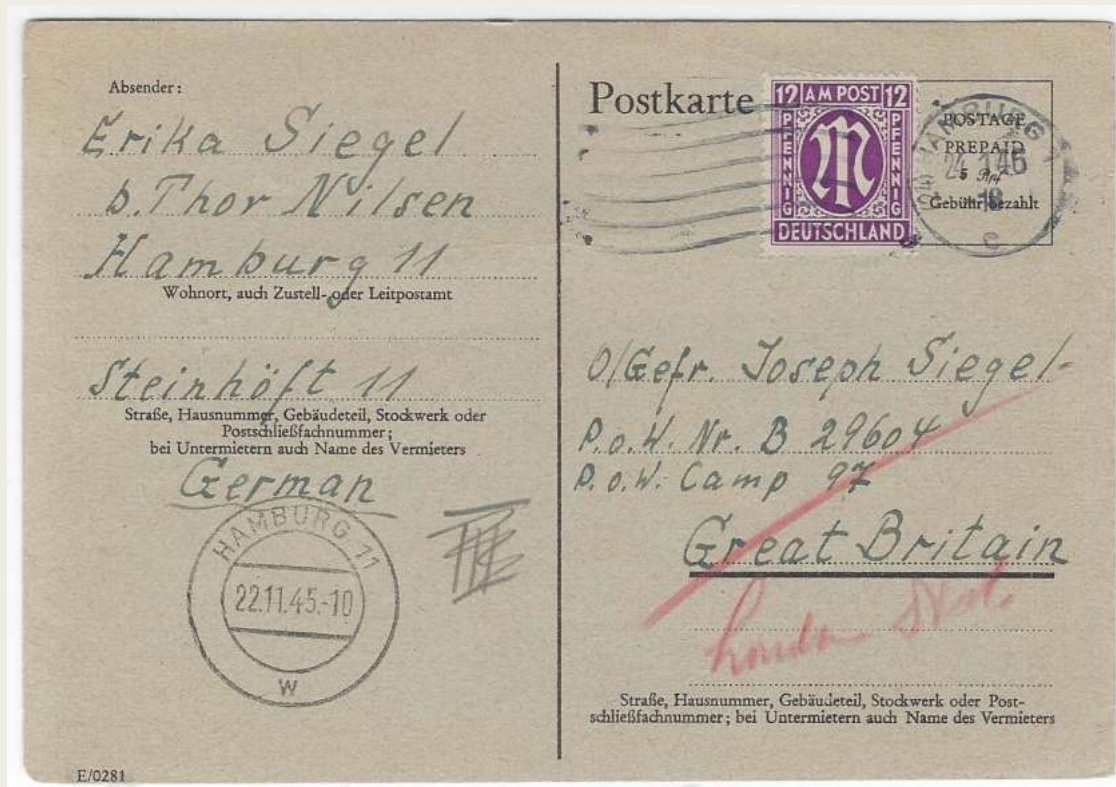 Absender:
Erika Siegel
b. Thor Nilsen
Hamburg 11
Wohnort, auch Zustell- oder Leitpostamt
Steinhöft 11
Straße, Hausnummer, Gebäudeteil, Stockwerk oder
Postschließfachnummer;
bei Untermietern auch Name des Vermieters
German
HAMBURG 11
22.11.45.-10
W
E/0281
Postkarte
12 AM POST 12
PFENNIG
PFENNIG
M
DEUTSCHLAND
POSTAGE
PREPAID
5 Rpf
Gebühr bezahlt
HAMBURG 1
24.1.46
18
c
O/Gefr. Joseph Siegel-
P.o.W. Nr. B 29604
P.o.W. Camp 97
Great Britain
London
Straße, Hausnummer, Gebäudeteil, Stockwerk oder Post-
schließfachnummer; bei Untermietern auch Name des Vermieters